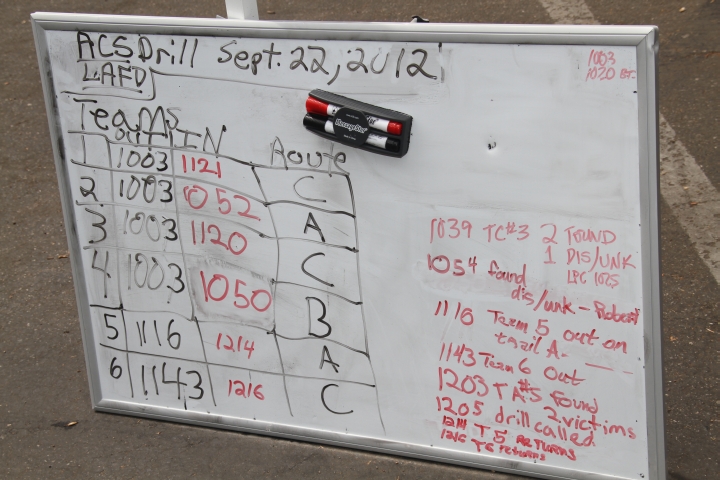 ACS Drill Sept. 22, 2012
LAFD
1003
1020
Teams
OUT IN Route
1 1003 1121 C
2 1003 1052 A
3 1003 1120 C
4 1003 1050 B
5 1116 1214 A
6 1143 1216 C
1039 TC#3 2 FOUND
1 DIS/UNK
1025
1054 found
dis/unk - Robert
1116 Team 5 out on
trail A-
1143 Team 6 out
1203 T A#5 found
2 victims
1205 drill called
1214 T5 RETURNS
1216 T6 returns